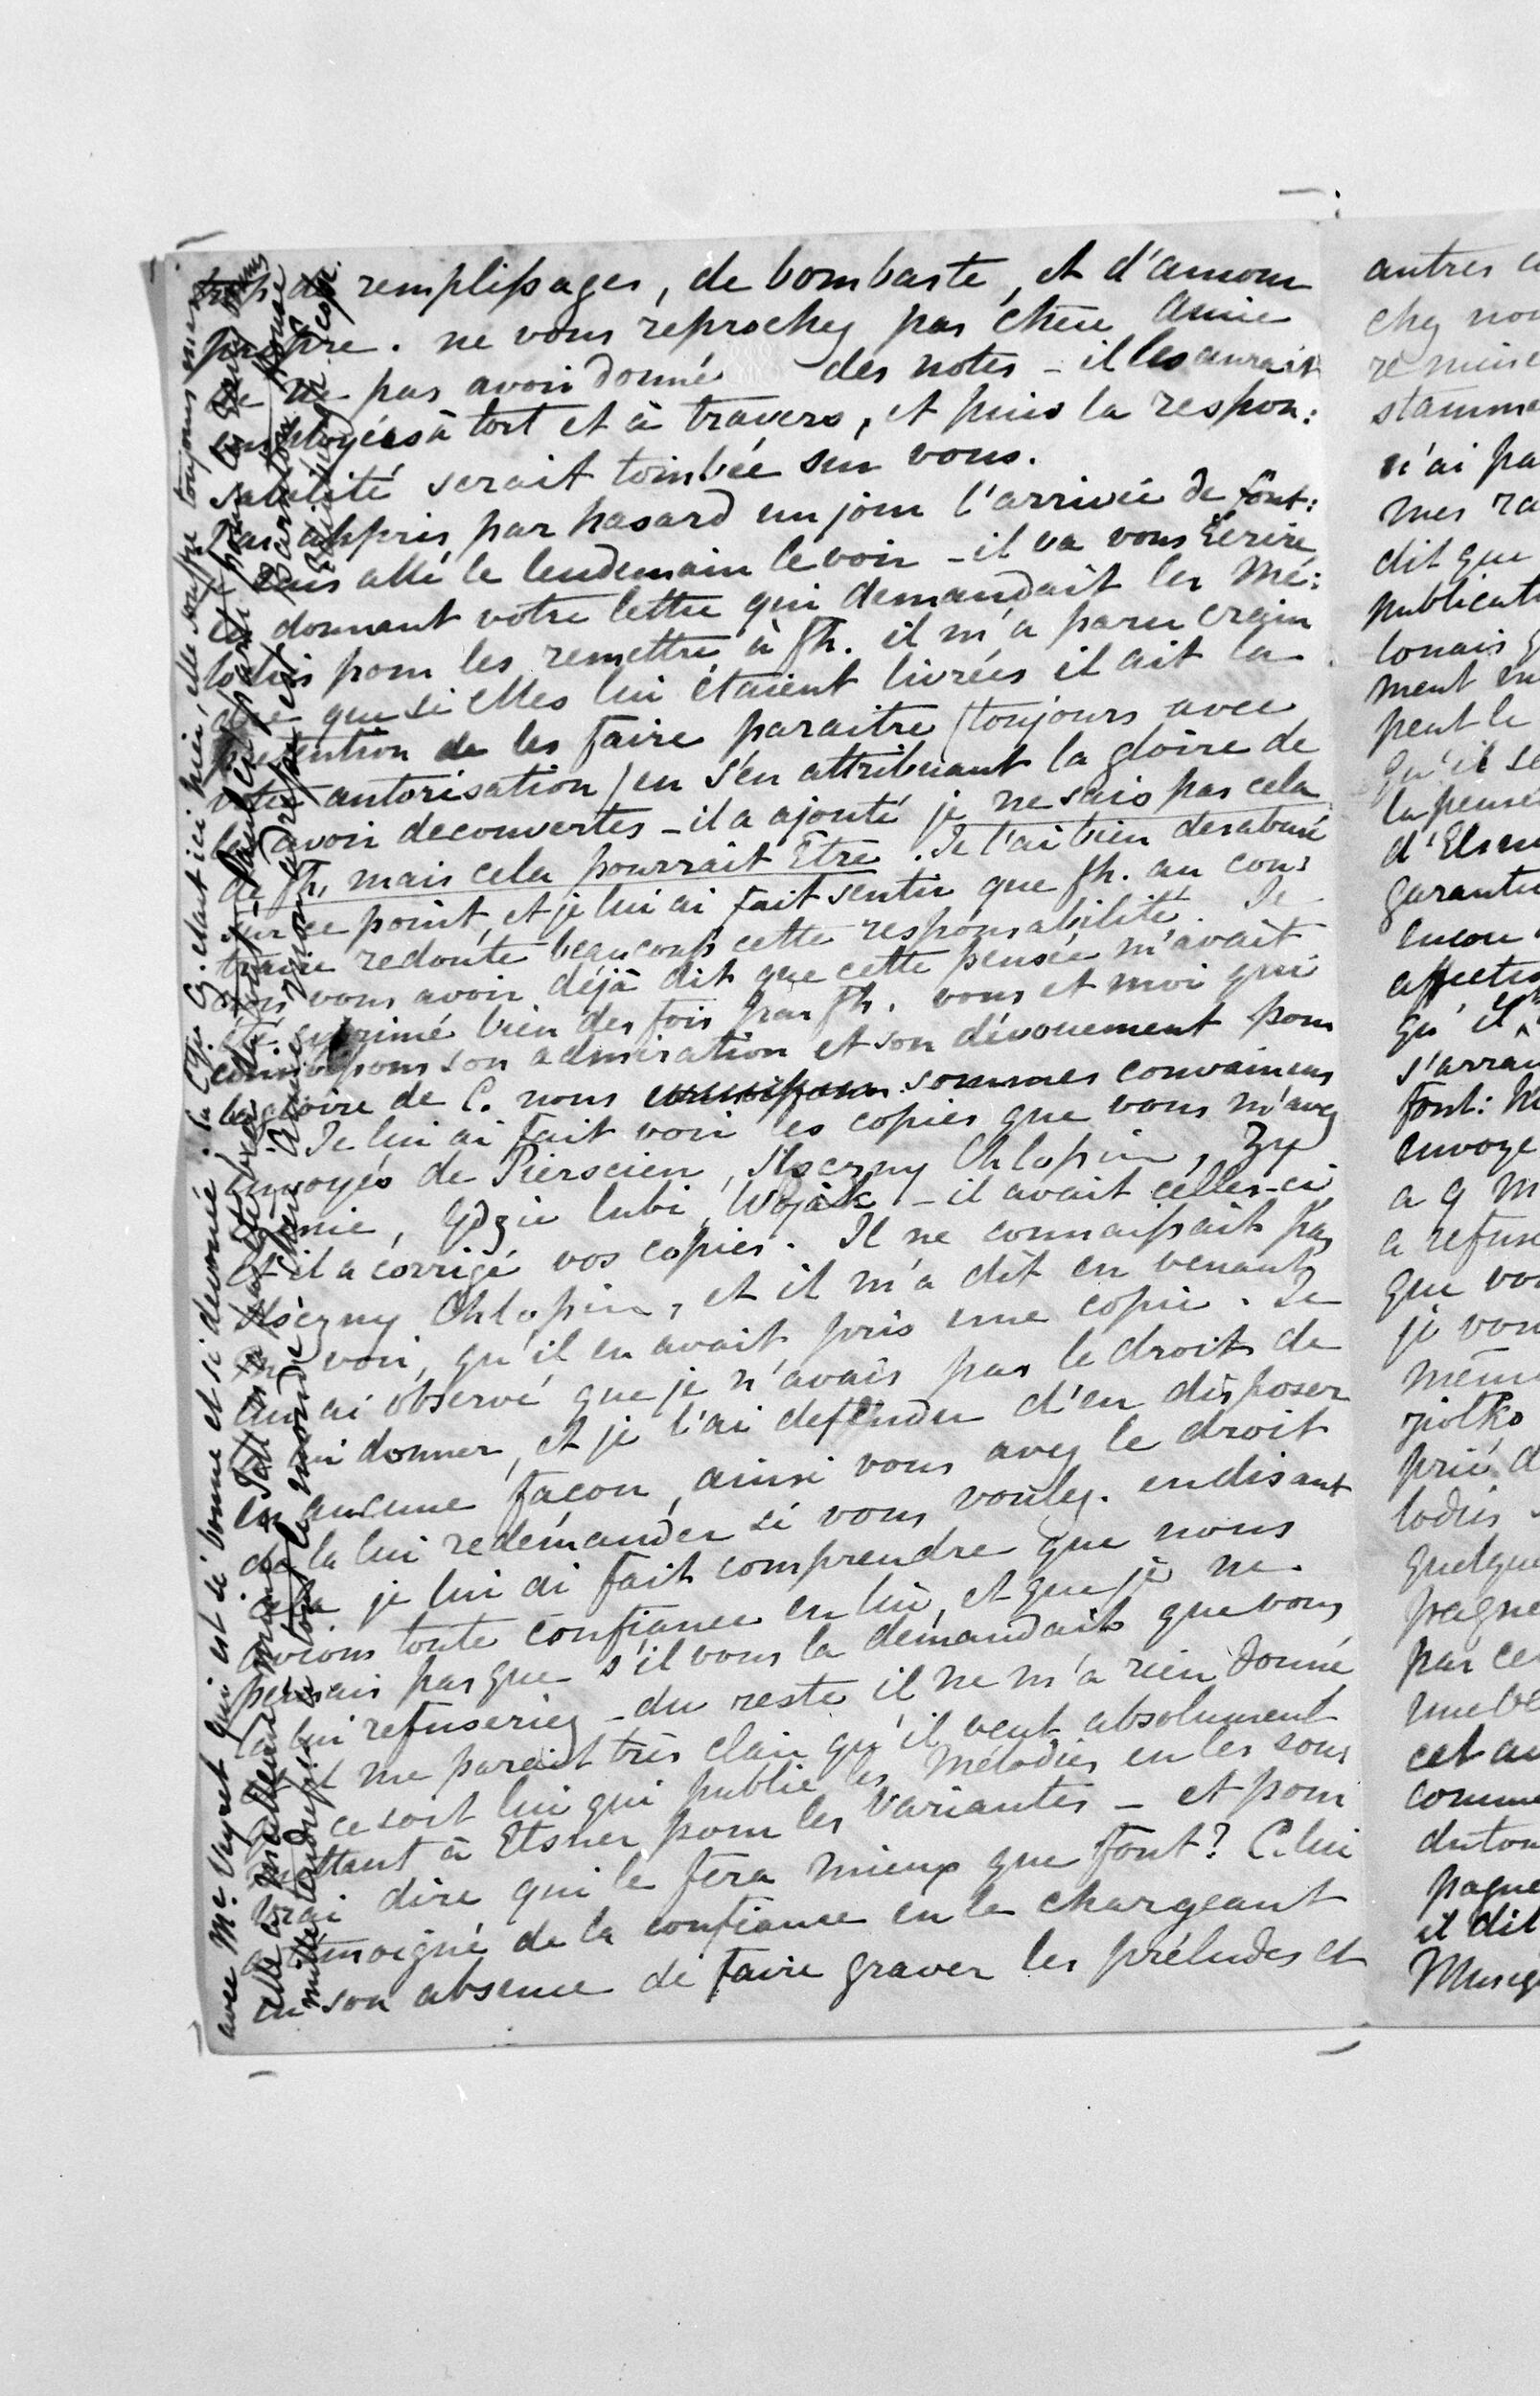 trop de remplissages, de bombaste, et d'amour
propre. ne vous reprochez pas chère amie
de ne pas avoir donné des notes - il les aurait
employées à tort et à travers, et puis la respon:
sabilité serait tombée sur vous.
J'ai appris par hasard un jour l'arrivée de font:
suis allé le lendemain le voir - il va vous Ecrire
et donnant votre lettre qui demandait les Mé:
lodies pour les remettre à fh. il m'a paru crain
dre que si elles lui étaient livrées il ait la
prétention de les faire paraitre (toujours avec
votre autorisation) en s'en attribuant la gloire de
les avoir decouvertes - il a ajouté je ne sais pas cela
de fh, mais cela pourrait Etre. Je l'ai bien desabusé
sur ce point, et je lui ai fait sentir que fh. au con:
traire redoute beaucoup cette responsabilité. Je
dois vous avoir déjà dit que cette pensée m'avait
été exprimé bien des fois par fh. vous et moi qui
connaissons son admiration et son dévouement pour
la gloire de C. nous sommes convaincus
Je lui ai fait voir les copies que vous m'avez
envoyés de Pierscien, Sliczny Chlopiec, Zy
czenie, Gdzie lubi, Wojak - il avait celles-ci
et il a corrigé vos copies. Il ne connaissait pas
Sliczny Chlopiec, et il m'a dit en venant
me voir, qu'il en avait pris une copie. Je
lui ai observé que je n'avais pas le droit de
la lui donner, et je l'ai defendu d'en disposer
en aucune façon, ainsi vous avez le droit
de la lui redemander si vous voulez. en disant
cela je lui ai fait comprendre que nous
avions toute confiance en lui, et que je ne
pensais pas que s'il vous la demandait que vous
la lui refuseriez - du reste il ne m'a rien donné
il me parait très clair qu'il veut absolument
que ce soit lui qui publie les Mélodies en les sou:
mettant à Elsner pour les Variantes - et pour
vrai dire qui le fera mieux que font? C. lui
a témoigné de la confiance en le chargeant
en son absence de faire graver les préludes et
avec Me. Veyret qui est si bonne et si devouée. la Csse. G. etait ici hier, elle souffre toujours
mille tendresses à tout le monde chère Amie
autres
chez nou
stamme
n'ai pa
mes ra
dit que
publicati
lonais
ment en
peut le
qu'il se
la pensé
d'Elsn
garantie
encore
qu'il
s'arran
font:
envoye
a q M
a refus
que vo
je vou
mêm
prié d
lodies
quelque
pagne
par ce
cet au
comme
du ton
pagne
il dit
Musiq